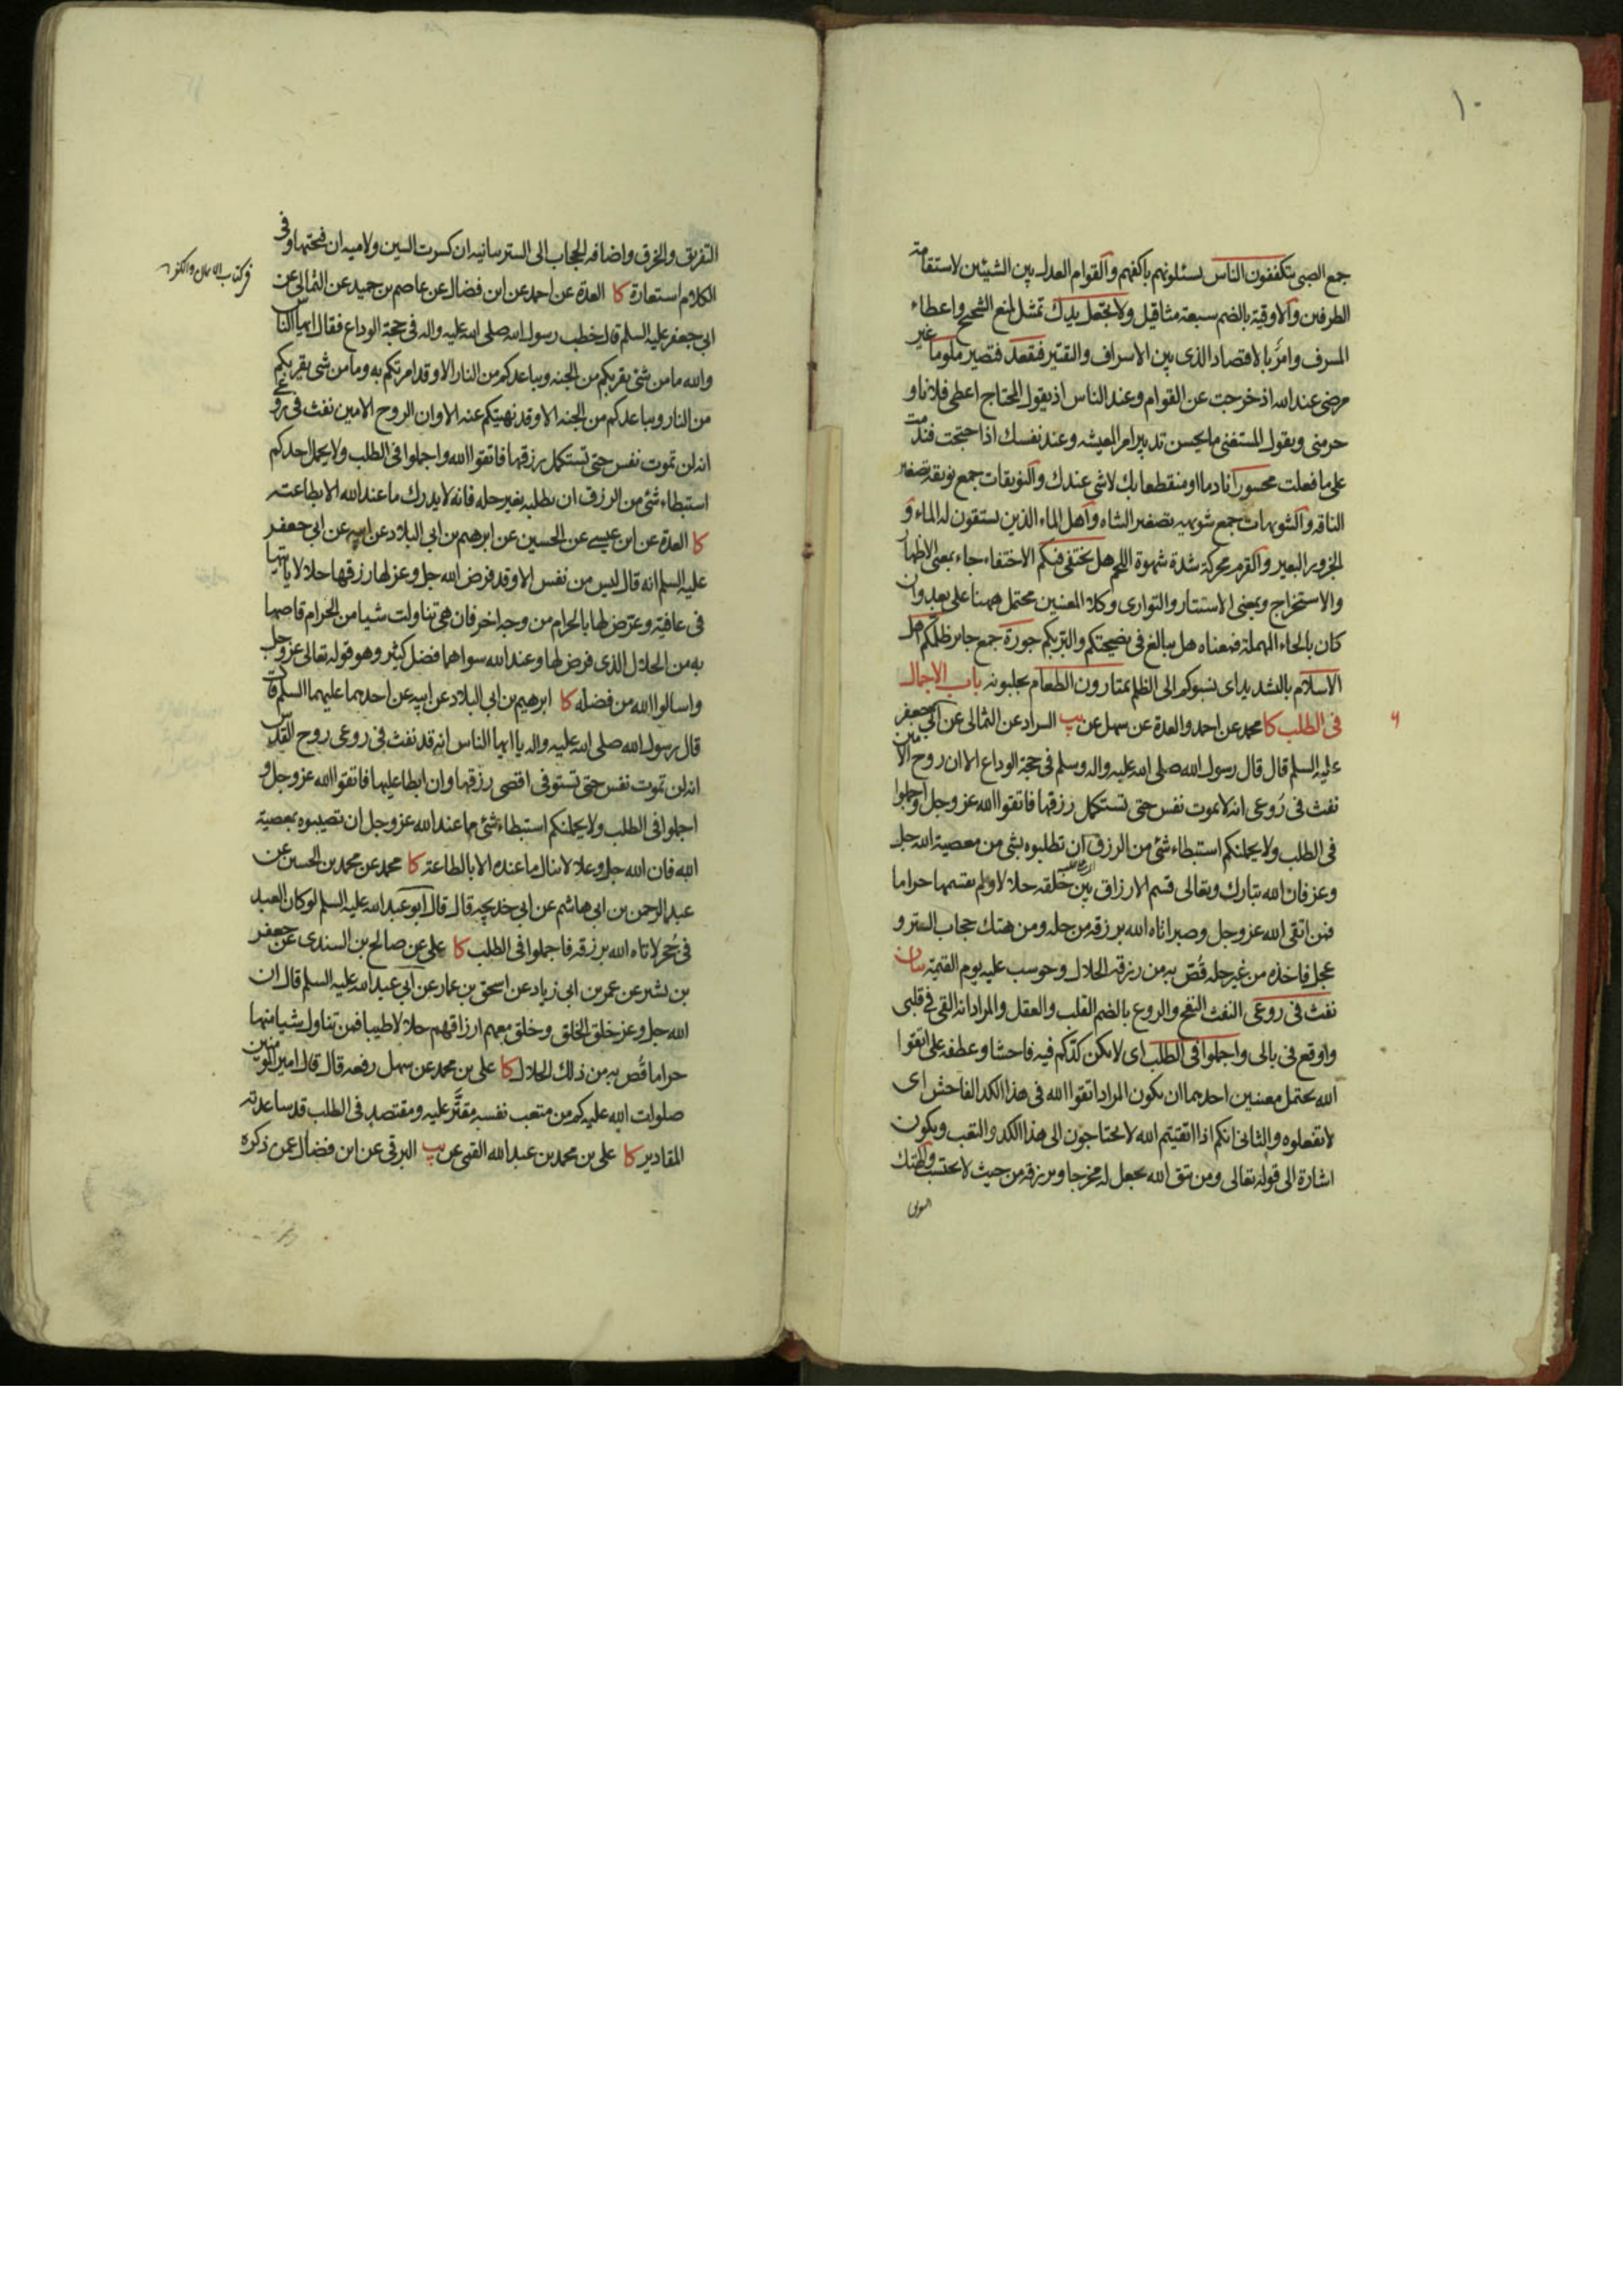 ١٠
جمع الصبى يتكففون الناس يسئلونهم باكفهم والقوام العدل بين الشيئين لاستقامة
الطرفين والاوقية بالضم سبعة مثاقيل ولا تجعل يدك تمثيل لمنع الشحيح واعطاء
المسرف وامر بالاقتصاد الذى بين الاسراف والتقتير فتقعد فتصير ملوما غير
مرضى عند الله اذ خرجت عن القوام وعند الناس اذ يقول المحتاج اعطى فلانا و
حرمنى ويقول المستغنى ما يحسن تدبير امر المعيشه وعند نفسك اذا احتجت فندمت
على ما فعلت محسورا نادما او منقطعا بك لا شى عندك والنويقات جمع نويقه تصغير
الناقه والشويهات جمع شويهه تصغير الشاه واهل الماء الذين يستقون له الماء و
الجزور البعير والقرم محركة شدة شهوة اللحم هل يختفى فيكم الاختفاء جاء بمعنى الاظهار
والاستخراج وبمعنى الاستتار والتوارى وكلا المعنيين محتمل ههنا على بعد وان
كان بالحاء المهملة فمعناه هل يبالغ فى نصيحتكم والبر بكم جورة جمع جاير ظلمكم اهل
الاسلام بالتشديد اى نسبوكم الى الظلم يمتارون الطعام يجلبونه باب الاجمال
فى الطلب كا محمد عن احمد والعدة عن سهل عن يب السراد عن الثمالى عن ابى جعفر
٦
عليه السلم قال قال رسول الله صلى الله عليه واله وسلم فى حجة الوداع الا ان روح الامين
نفث فى رُوعى انه لا يموت نفس حتى تستكمل رزقها فاتقوا الله عز وجل واجملوا
فى الطلب ولا يحملنكم استبطاء شئ من الرزق ان تطلبوه بشى من معصية الله جل
وعز فان الله تبارك وتعالى قسم الارزاق بين خلقه حلالا ولم يقسمها حراما
فمن اتقى الله عز وجل وصبر اتاه الله برزقه من حله ومن هتك حجاب الستر و
عجل فاخذه من غير حله قُصّ به من رزقه الحلال وحوسب عليه يوم القيمة بيان
نفث فى روعى النفث النفخ والروع بالضم القلب والعقل والمراد انه القى فى قلبى
واوقع فى بالى واجملوا فى الطلب اى لا يكن كدّكم فيه فاحشا وعطفه على اتقوا
الله يحتمل معنيين احدهما ان يكون المراد اتقوا الله فى هذا الكد الفاحش اى
لا تفعلوه والثانى انكم اذا اتقيتم الله لا تحتاجون الى هذا الكد والتعب ويكون
اشارة الى قوله تعالى ومن يتق الله يجعل له مخرجا ويرزقه من حيث لا يحتسب والهتك
التفريق والخرق واضافه الحجاب الى الستر بيانيه ان كسرت السين ولاميه ان فتحتها وفى
الكلام استعارة كا العدة عن احمد عن ابن فضال عن عاصم بن حميد عن الثمالى عن
ابى جعفر عليه السلم قال خطب رسول الله صلى الله عليه واله فى حجة الوداع فقال ايها الناس
والله ما من شئ يقربكم من الجنه ويباعدكم من النار الا وقد امرتكم به وما من شى يقربكم
من النار ويباعدكم من الجنه الا وقد نهيتكم عنه الا وان الروح الامين نفث فى روعى
انه لن تموت نفس حتى تستكمل رزقها فاتقوا الله واجملوا فى الطلب ولا يحمل احدكم
استبطاء شئ من الرزق ان يطلبه بغير حله فانه لا يدرك ما عند الله الا بطاعته
كا العدة عن ابن عيسى عن الحسين عن ابرهيم بن ابى البلاد عن ابيه عن ابى جعفر
عليه السلم انه قال ليس من نفس الا وقد فرض الله جل وعز لها رزقها حلالا ياتيها
فى عافية وعرض لها بالحرام من وجه اخر فان هى تناولت شيا من الحرام قاصها
به من الحلال الذى فرض لها وعند الله سواهما فضل كثير وهو قوله تعالى عز وجل
واسالوا الله من فضله كا ابرهيم بن ابى البلاد عن ابيه عن احدهما عليهما السلم قال
قال رسول الله صلى الله عليه واله يا ايها الناس انه قد نفث فى روعى روح القدس
انه لن تموت نفس حتى تستوفى اقصى رزقها وان ابطا عليها فاتقوا الله عز وجل و
اجملوا فى الطلب ولا يحملنكم استبطاء شئ مما عند الله عز وجل ان تصيبوه بمعصية
الله فان الله جل وعلا لا ينال ما عنده الا بالطاعة كا محمد عن محمد بن الحسين عن
عبد الرحمن بن ابى هاشم عن ابى خديجه قال قال ابو عبد الله عليه السلم لو كان العبد
فى حُجر لاتاه الله برزقه فاجملوا فى الطلب كا على عن صالح بن السندى عن جعفر
بن بشير عن عمر بن ابى زياد عن اسحق بن عمار عن ابى عبد الله عليه السلم قال ان
الله جل وعز خلق الخلق وخلق معهم ارزاقهم حلالا طيبا فمن تناول شيا منها
حراما قُص به من ذلك الحلال كا على بن محمد عن سهل رفعه قال قال امير المومنين
صلوات الله عليه كم من متعب نفسه مقتَّر عليه ومقتصد فى الطلب قد ساعدته
المقادير كا على بن محمد بن عبد الله القمى عن يب البرقى عن ابن فضال عمن ذكره